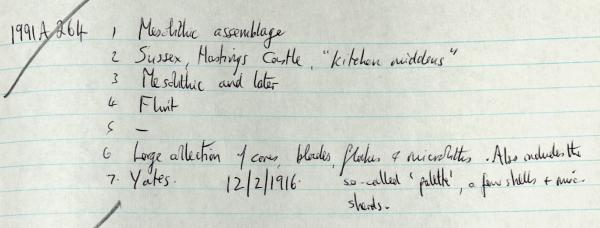 1991 A 264 1 Mesolithic assemblage
2 Sussex, Hastings Castle, "Kitchen middens"
3 Mesolithic and later
4 Flint
5 —
6 Large collection of cores, blades, flakes & microliths. Also includes the
7. Yates. 12/2/1916. so-called 'palette', a few shells + misc.
sherds.